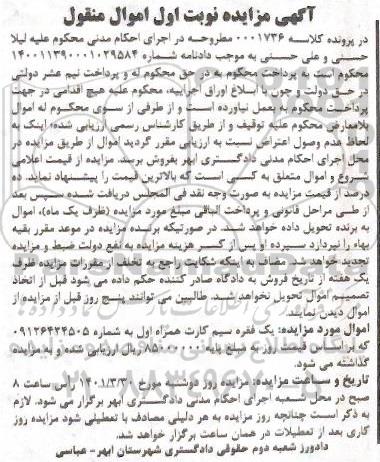 آگهی مزایده نوبت اول اموال منقول
در پرونده کلاسه ۰۰۰۱۷۳۶ مطروحه در اجرای احکام مدنی محکوم علیه لیلا
حسنی و علی حسنی به موجب دادنامه شماره ۱۴۰۰۱۱۳۹۰۰۰۱۰۲۹۵۸۴
محکوم است به پرداخت محکوم به در حق محکوم له و پرداخت نیم عشر دولتی
در حق دولت و چون با ابلاغ اوراق اجراییه، محکوم علیه هیچ اقدامی در جهت
پرداخت محکوم به بعمل نیاورده است و از طرفی از سوی محکوم له اموال
بلامعارض محکوم علیه توقیف و از طریق کارشناس رسمی ارزیابی شده اینک به
لحاظ عدم وصول اعتراض نسبت به ارزیابی مقرر گردید اموال از طریق مزایده در
محل اجرای احکام مدنی دادگستری ابهر بفروش برسد. مزایده از قیمت اعلامی
شروع و اموال متعلق به کسی است که بالاترین قیمت را پیشنهاد نماید. ده
درصد از قیمت مزایده به صورت وجه نقد فی المجلس دریافت شده سپس بعد
از طی مراحل قانونی و پرداخت الباقی مبلغ مورد مزایده (ظرف یک ماه)، اموال
به برنده تحویل داده خواهد شد. در صورتیکه برنده مزایده در موعد مقرر بقیه
بهاء را نپردازد سپرده او پس از کسر هزینه مزایده به نفع دولت ضبط و مزایده
تجدید خواهد شد. مضاف به اینکه شکایت راجع به تخلف از مقررات مزایده ظرف
یک هفته از تاریخ فروش به دادگاه صادر کننده حکم داده می شود قبل از اتخاذ
تصمیم اموال تحویل نخواهد شد. طالبین می توانند پنج روز قبل از مزایده از
اموال دیدن نمایند.
اموال مورد مزایده: یک فقره سیم کارت همراه اول به شماره ۰۹۱۲۶۴۲۴۵۰۵
که بر اساس قیمت روز به مبلغ پایه ریال ارزیابی شده و به مزایده
گذاشته می شود.
تاریخ و ساعت مزایده: مزایده روز دوشنبه مورخ ۱۴۰۱/۳/۳۰ رأس ساعت ۸
صبح در محل شعبه اجرای احکام مدنی دادگستری ابهر برگزار می شود. لازم
به ذکر است چنانچه روز مزایده به هر دلیلی مصادف با تعطیلی شود مزایده روز
کاری بعد از تعطیلات در همان ساعت برگزار خواهد شد.
دادورز شعبه دوم حقوقی دادگستری شهرستان ابهر- عباسی